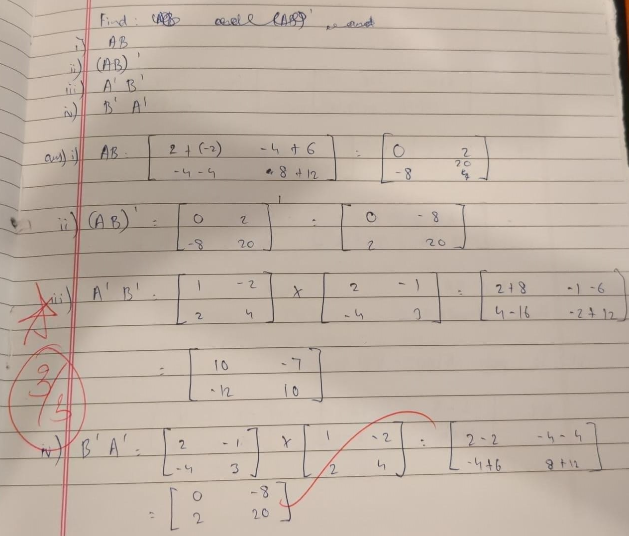 Find:
i) AB
ii) (AB)'
iii) A' B'
iv) B' A'
ans) i) AB = [ 2 + (-2) -4 + 6 ; -4 - 4 8 + 12 ] = [ 0 2 ; -8 20 ]
ii) (AB)' = [ 0 2 ; -8 20 ]' = [ 0 -8 ; 2 20 ]
iii) A' B' = [ 1 -2 ; 2 4 ] × [ 2 -1 ; -4 3 ] = [ 2+8 -1-6 ; 4-16 -2+12 ]
= [ 10 -7 ; -12 10 ]
3/5
iv) B' A' = [ 2 -1 ; -4 3 ] × [ 1 -2 ; 2 4 ] = [ 2-2 -4-4 ; -4+6 8+12 ]
= [ 0 -8 ; 2 20 ]